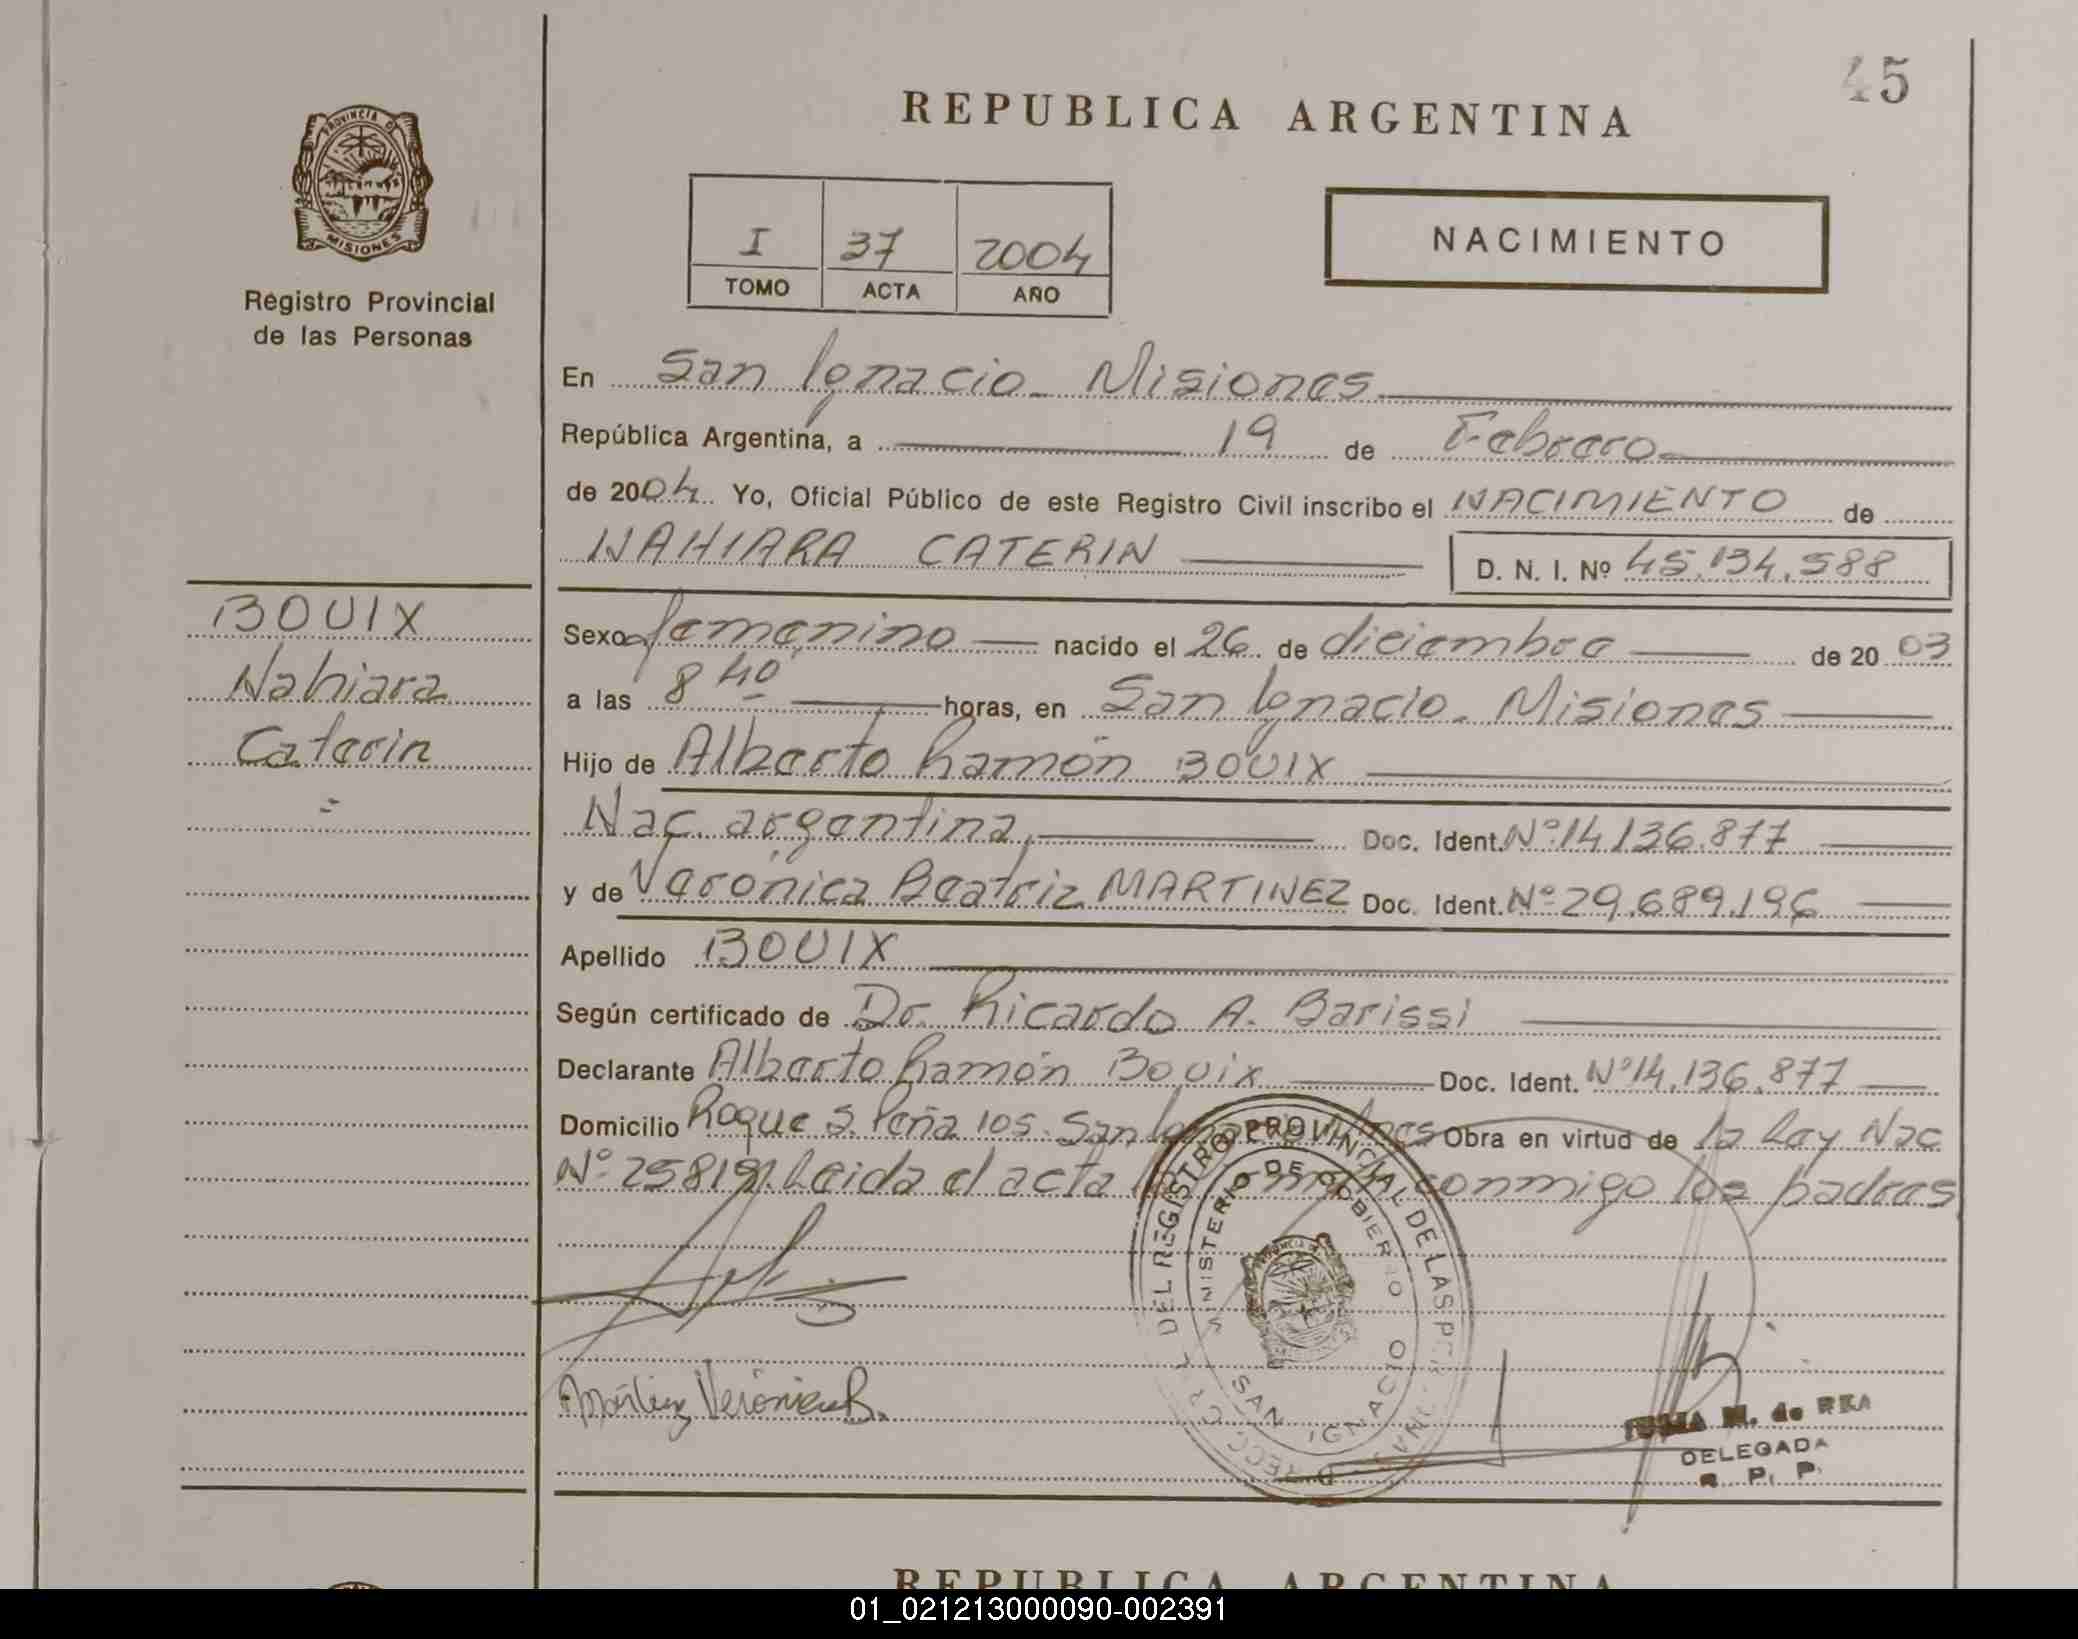 45
REPUBLICA ARGENTINA
PROVINCIA DE
MISIONES
Registro Provincial
de las Personas
I 37 2004
TOMO ACTA AÑO
NACIMIENTO
En San Ignacio - Misiones
República Argentina, a 19 de Febrero
de 2004 Yo, Oficial Público de este Registro Civil inscribo el NACIMIENTO de
NAHIARA CATERIN D. N. I. Nº 45.134.588
BOUIX
Nahiara
Caterin
Sexo femenino nacido el 26 de diciembre de 2003
a las 8 40 horas, en San Ignacio - Misiones
Hijo de Alberto Ramón BOUIX
Nac. argentina, Doc. Ident. Nº 14.136.877
y de Verónica Beatriz MARTINEZ Doc. Ident. Nº 29.689.196
Apellido BOUIX
Según certificado de Dr. Ricardo A. Barissi
Declarante Alberto Ramón Bouix Doc. Ident. Nº 14.136.877
Domicilio Roque S. Peña 105. San Obra en virtud de la Ley Nac
Nº 25819. Leida el acta conmigo los padres
DEL REGISTRO PROVINCIAL DE LAS
MINISTERIO DE GOBIERNO
SAN IGNACIO
Martinez Verónica B.
M. de REA
DELEGADA
R. P. P.
REPUBLICA ARGENTINA
01_021213000090-002391